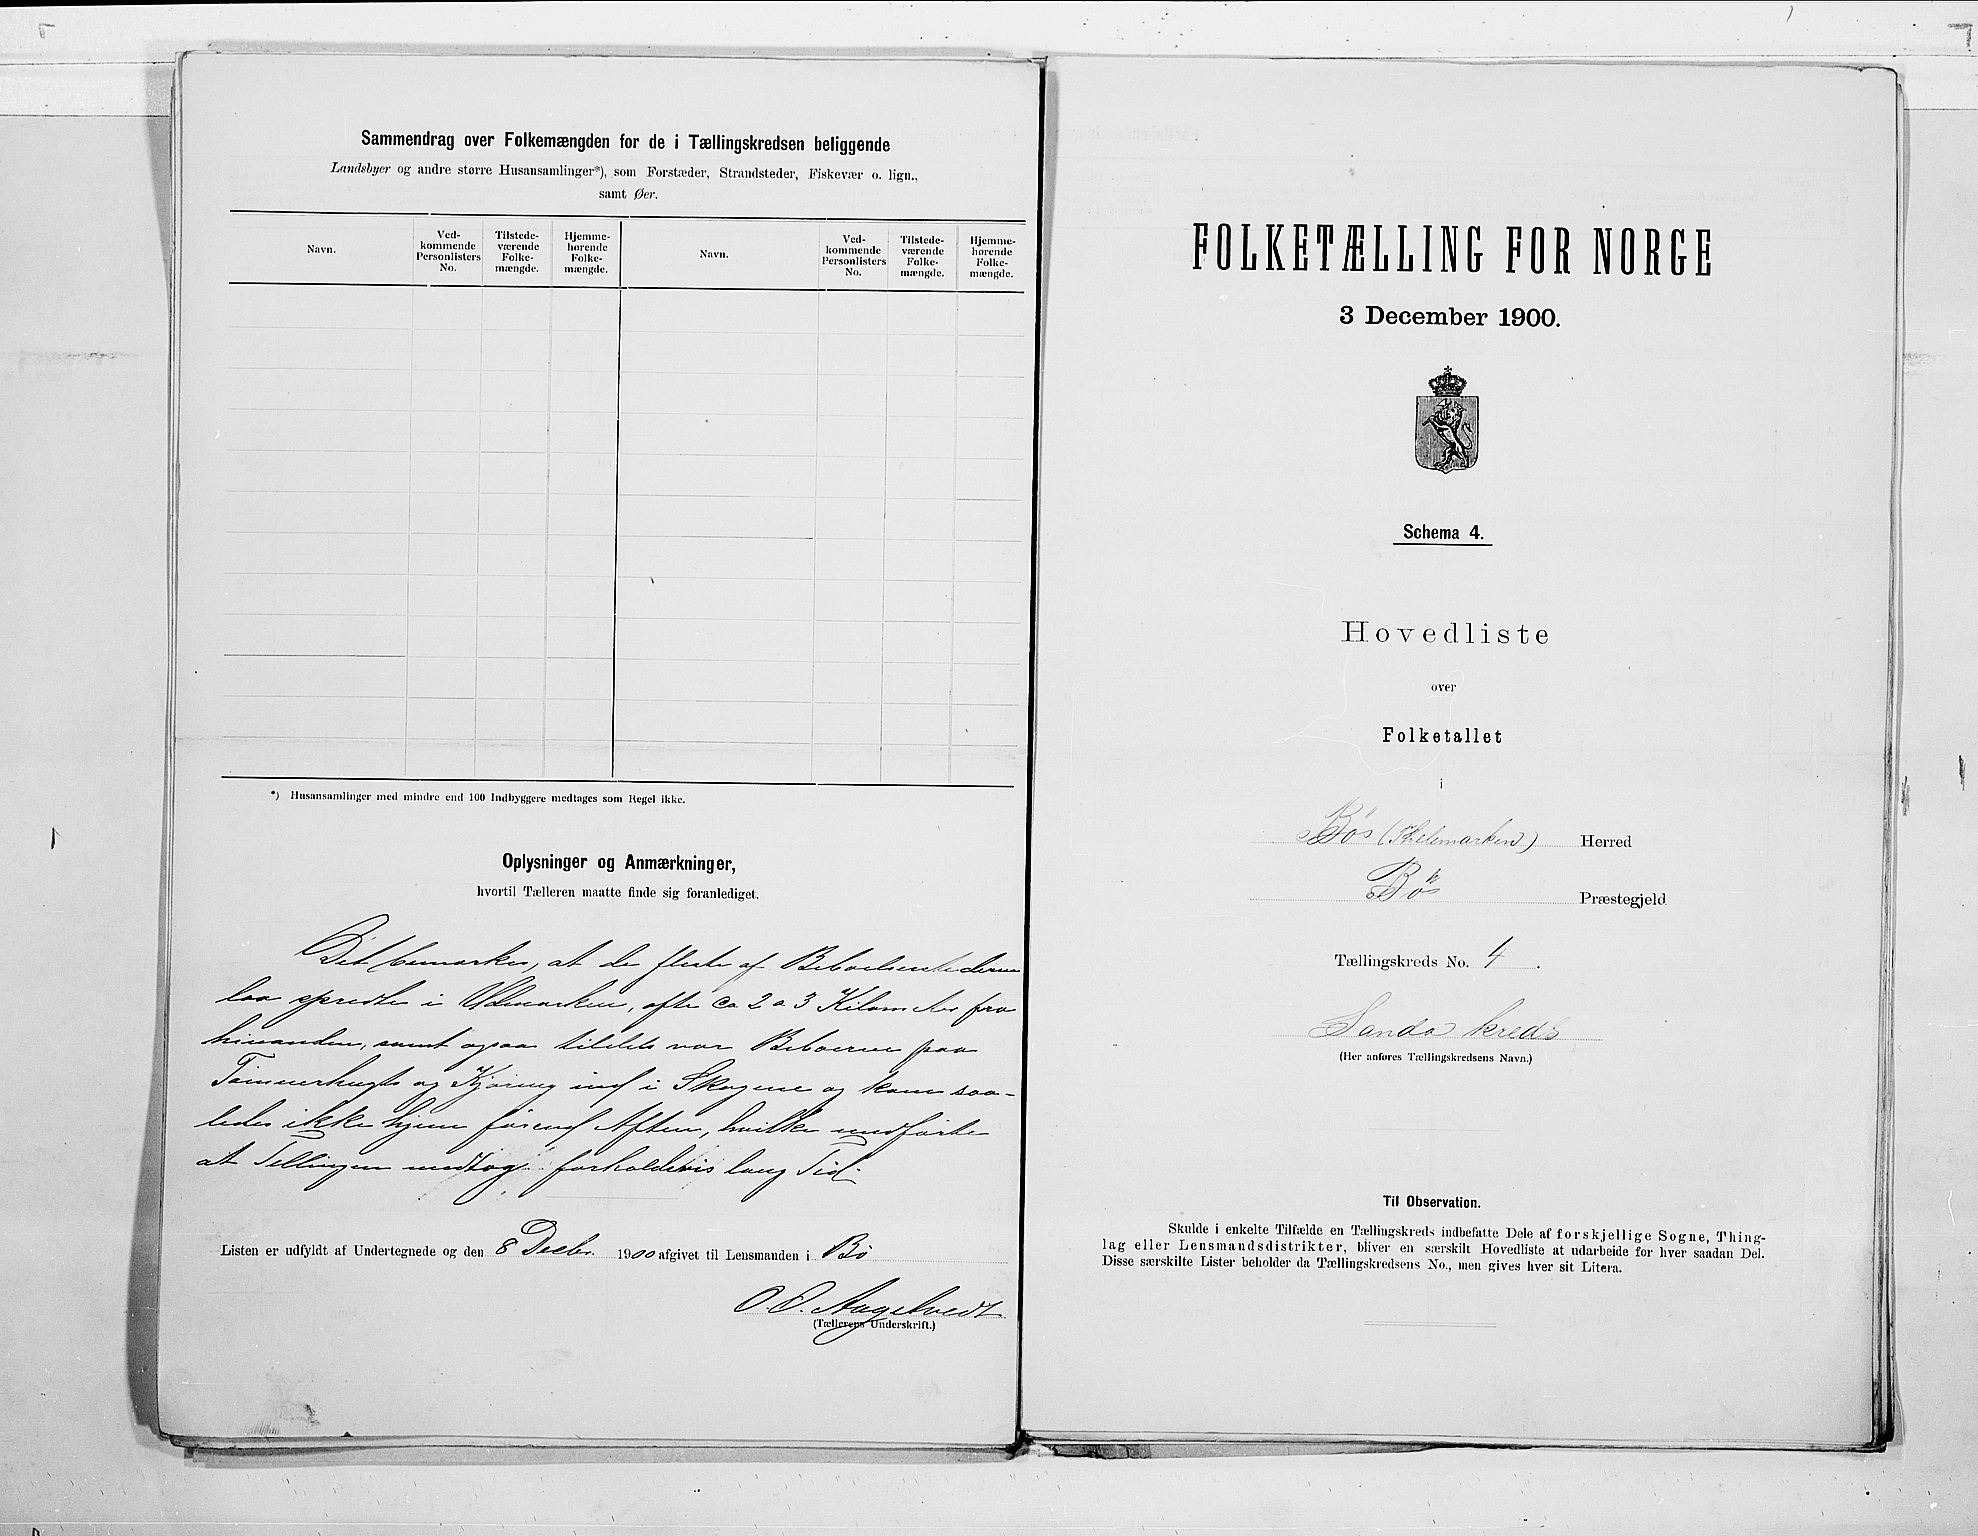 Sammendrag over Folkemængden for de i Tællingskredsen beliggende
Landsbyer og andre større Husansamlinger*), som Forstæder, Strandsteder, Fiskevær o. lign.,
samt Øer.
Navn.
Ved-
kommende
Personlisters
No.
Tilstede-
værende
Folke-
mængde.
Hjemme-
hørende
Folke-
mængde.
Navn.
Ved-
kommende
Personlisters
No.
Tilstede-
værende
Folke-
mængde.
Hjemme-
hørende
Folke-
mængde.
*) Husansamlinger med mindre end 100 Indbyggere medtages som Regel ikke.
Oplysninger og Anmærkninger,
hvortil Tælleren maatte finde sig foranlediget.
Det bemærkes, at de fleste af Beboelsestederne
laa spredte i Udmarken, ofte ca 2 a 3 Kilometer fra
hinanden, samt ogsaa tildels var Beboerne paa
Tømmerhugst og Kjøring ind i Skogene og kom saa-
ledes ikke hjem førend Aften, hvilke medførte
at Tellingen medtog forholdsvis lang Tid.
Listen er udfyldt af Undertegnede og den 8 Decbr. 1900 afgivet til Lensmanden i Bø
O. O. Aagetvedt
(Tællerens Underskrift.)
FOLKETÆLLING FOR NORGE
3 December 1900.
Schema 4.
Hovedliste
over
Folketallet
i
Bø (Thelemarken) Herred
Bø Præstegjeld
Tællingskreds No. 4.
Sanda kreds
(Her anføres Tællingskredsens Navn.)
Til Observation.
Skulde i enkelte Tilfælde en Tællingskreds indbefatte Dele af forskjellige Sogne, Thing-
lag eller Lensmandsdistrikter, bliver en særskilt Hovedliste at udarbeide for hver saadan Del.
Disse særskilte Lister beholder da Tællingskredsens No., men gives hver sit Litera.